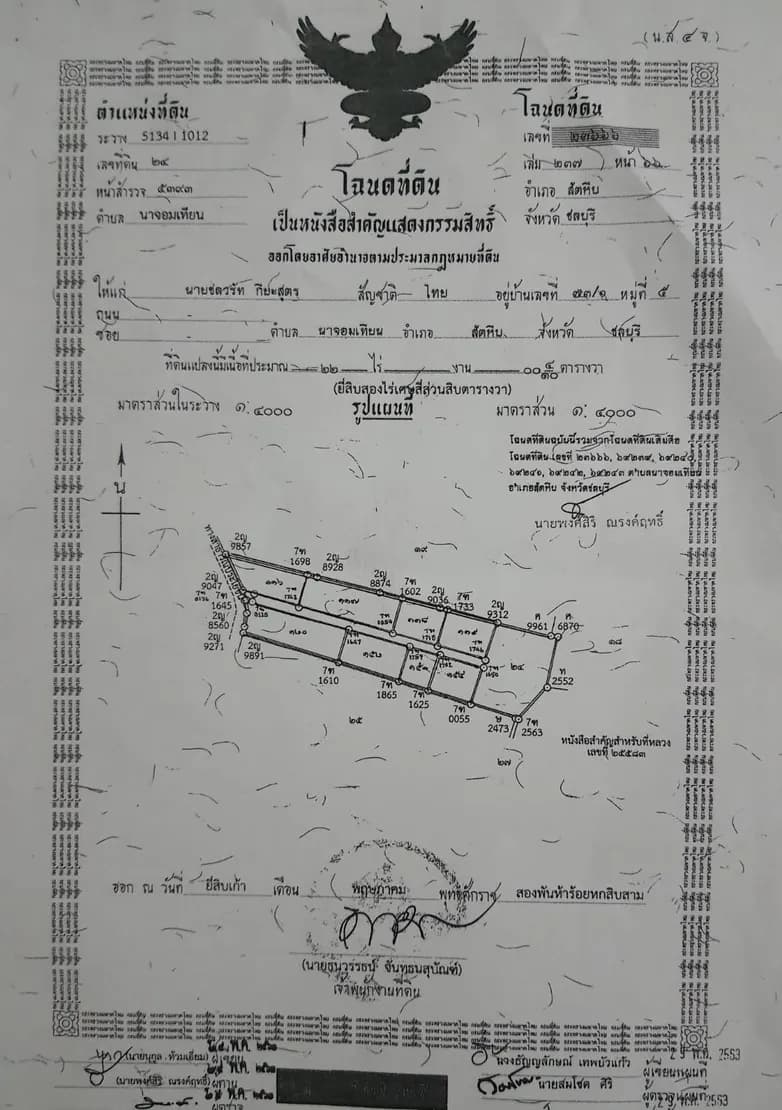 (น.ส.๔ จ.)
ตำแหน่งที่ดิน
โฉนดที่ดิน
ระวาง 5134 I 1012
เลขที่ ๒๓๖๖๖
เลขที่ดิน ๒๔
เล่ม ๒๓๗ หน้า ๖๖
หน้าสำรวจ ๕๓๙๓
โฉนดที่ดิน
อำเภอ สัตหีบ
ตำบล นาจอมเทียน
เป็นหนังสือสำคัญแสดงกรรมสิทธิ์
จังหวัด ชลบุรี
ออกโดยอาศัยอำนาจตามประมวลกฎหมายที่ดิน
ให้แก่ สัญชาติ ไทย อยู่บ้านเลขที่ หมู่ที่ ๕
ถนน -
ซอย - ตำบล นาจอมเทียน อำเภอ สัตหีบ จังหวัด ชลบุรี
ที่ดินแปลงนี้มีเนื้อที่ประมาณ ๒๒ ไร่ งาน ๐๐ ๔/๑๐ ตารางวา
(ยี่สิบสองไร่เศษสี่ส่วนสิบตารางวา)
มาตราส่วนในระวาง ๑:๔๐๐๐
รูปแผนที่
มาตราส่วน ๑:๔๐๐๐
โฉนดที่ดินฉบับนี้รวมจากโฉนดที่ดินเดิมคือ
โฉนดที่ดิน เลขที่ ๒๓๖๖๖, ๖๙๒๓๙, ๖๙๒๔๐,
๖๙๒๔๑, ๖๙๒๔๒, ๖๙๒๔๓ ตำบลนาจอมเทียน
อำเภอสัตหีบ จังหวัดชลบุรี
นายพงศ์สิริ ณรงค์ฤทธิ์
น
๑๙
2ญ
9857
7ท
1698
2ญ
8928
2ญ
8874
7ท
1602
2ญ
9036
7ท
1733
2ญ
9312
ค
9961
ค
6870
2ญ
9047
7ท
1645
๑๓๖
๑๓๗
๑๓๘
๑๓๙
๑๘
2ญ
8560
2ญ
9271
2ญ
9891
๑๒๐
๑๕๒
๑๕๓
๑๕๔
๒๔
ท
2552
7ท
1610
7ท
1865
7ท
1625
7ท
0055
ษ
2473
7ท
2563
๒๕
๒๗
หนังสือสำคัญสำหรับที่หลวง
เลขที่ ๒๕๕๘๓
ออก ณ วันที่ ยี่สิบเก้า เดือน พฤษภาคม พุทธศักราช สองพันห้าร้อยหกสิบสาม
(นายธนวรรธน์ จันทธนสุบัณฑ์)
เจ้าพนักงานที่ดิน
(นายนุกูล ท้วมเอี่ยม) ผู้เขียน
(นายพงศ์สิริ ณรงค์ฤทธิ์) ผู้ทาน
ผู้ตรวจ
นางธัญญลักษณ์ เทพบัวแก้ว ผู้เขียนแผนที่
นายสมโชค ศิริ ผู้ตรวจแผนที่